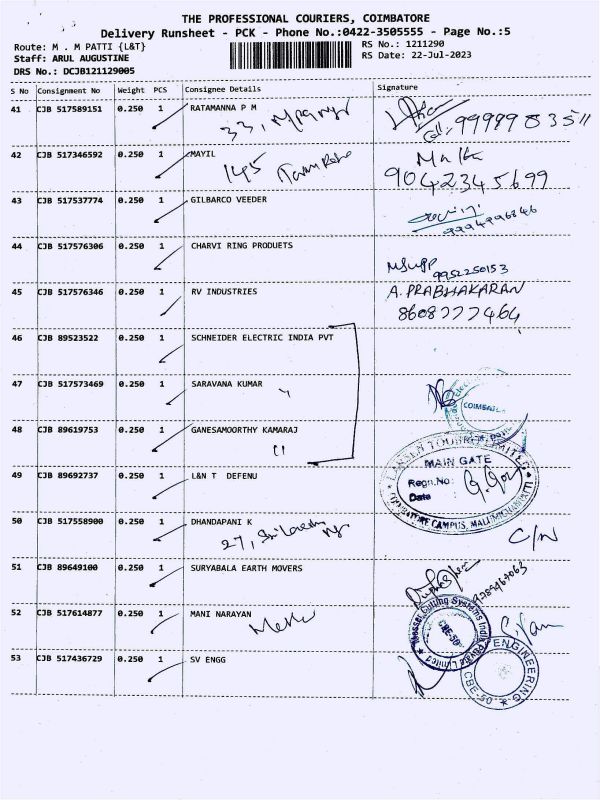 THE PROFESSIONAL COURIERS, COIMBATORE
Delivery Runsheet - PCK - Phone No.:0422-3505555 - Page No.:5
Route: M . M PATTI {L&T}
RS No.: 1211290
Staff: ARUL AUGUSTINE
RS Date: 22-Jul-2023
DRS No.: DCJB121129005
S No Consignment No Weight PCS Consignee Details Signature
41 CJB 517589151 0.250 1 RATAMANNA P M
33,
99999 83511
42 CJB 517346592 0.250 1 MAYIL
145
9042345699
43 CJB 517537774 0.250 1 GILBARCO VEEDER
9994996846
44 CJB 517576306 0.250 1 CHARVI RING PRODUETS
9952250153
45 CJB 517576346 0.250 1 RV INDUSTRIES
A. PRABHAKARAN
8608777464
46 CJB 89523522 0.250 1 SCHNEIDER ELECTRIC INDIA PVT
47 CJB 517573469 0.250 1 SARAVANA KUMAR
COIMBATORE
48 CJB 89619753 0.250 1 GANESAMOORTHY KAMARAJ
MAIN GATE
Regn.No:
Date :
49 CJB 89692737 0.250 1 L&N T DEFENU
50 CJB 517558900 0.250 1 DHANDAPANI K
27,
C/N
51 CJB 89649100 0.250 1 SURYABALA EARTH MOVERS
52 CJB 517614877 0.250 1 MANI NARAYAN
Messer Cutting Systems India Private Limited
CBE-50
53 CJB 517436729 0.250 1 SV ENGG
ENGINEERING
CBE-50